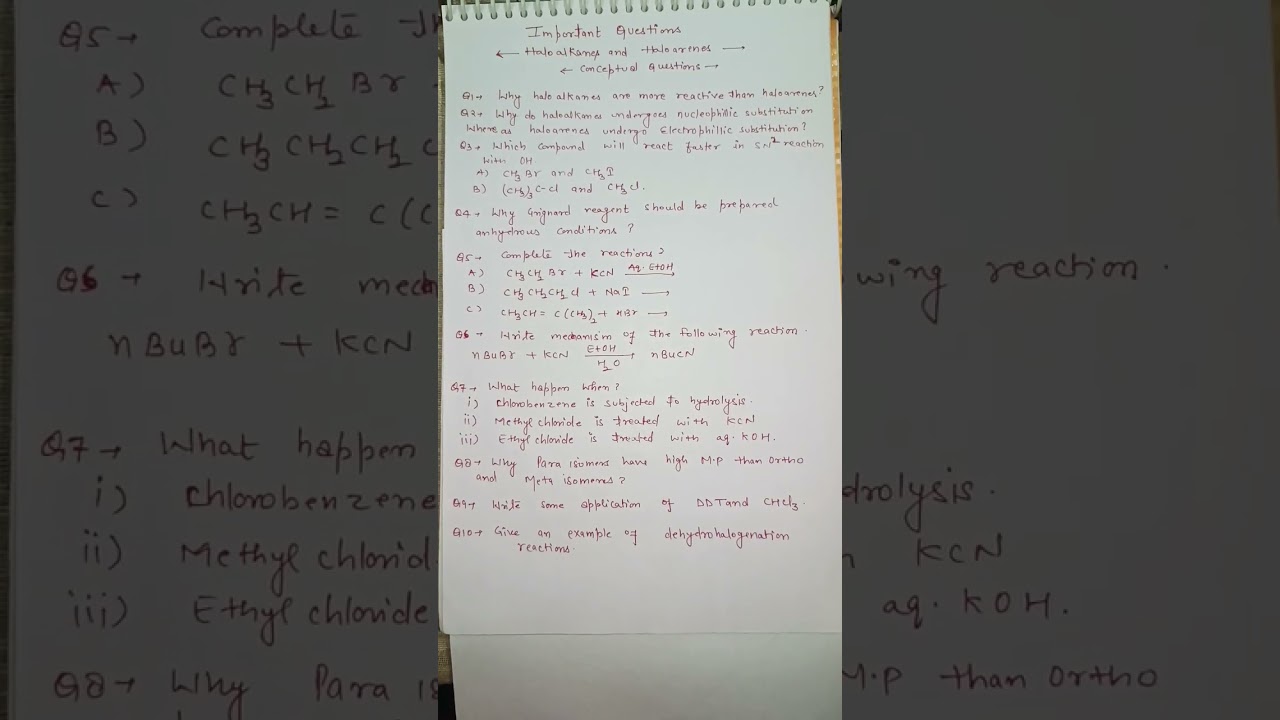 Important Questions
← Haloalkanes and Haloarenes →
← Conceptual Questions →
Q1→ Why haloalkanes are more reactive than haloarenes?
Q2→ Why do haloalkanes undergoes nucleophilic substitution
Where as haloarenes undergo Electrophillic substitution?
Q3→ Which compound will react faster in SN² reaction
with OH
A) CH₃Br and CH₃I
B) (CH₃)₃C-Cl and CH₃Cl.
Q4→ Why Grignard reagent should be prepared
anhydrous conditions?
Q5→ Complete the reactions?
A) CH₃CH₂Br + KCN Aq. EtOH →
B) CH₃CH₂CH₂Cl + NaI →
C) CH₃CH = C(CH₃)₂ + HBr →
Q6→ Write mechanism of the following reaction.
nBuBr + KCN EtOH → nBuCN
H₂O
Q7→ What happen when?
i) Chlorobenzene is subjected to hydrolysis.
ii) Methyl chloride is treated with KCN
iii) Ethyl chloride is treated with aq. KOH.
Q8→ Why Para isomers have high M.P than Ortho
and Meta isomeres?
Q9→ Write some application of DDT and CHCl₃.
Q10→ Give an example of dehydrohalogenation
reactions.
Q5→ Complete the
A) CH₃CH₂Br
B) CH₃CH₂CH₂C
C) CH₃CH = C(C
Q6→ Write mech
wing reaction.
nBuBr + KCN
Q7→ What happen
i) Chlorobenzene
drolysis.
ii) Methyl chlorid
KCN
iii) Ethyl chloride
aq. KOH.
Q8→ Why Para is
M.P than Ortho